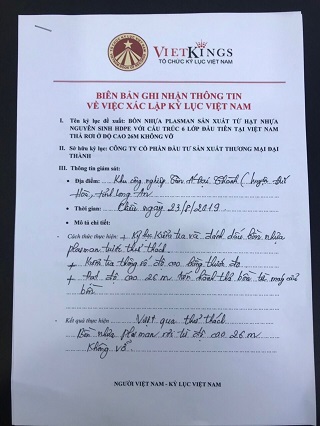 VIETKINGS
TỔ CHỨC KỶ LỤC VIỆT NAM
BIÊN BẢN GHI NHẬN THÔNG TIN
VỀ VIỆC XÁC LẬP KỶ LỤC VIỆT NAM
I. Tên kỷ lục đề xuất: BỒN NHỰA PLASMAN SẢN XUẤT TỪ HẠT NHỰA
NGUYÊN SINH HDPE VỚI CẤU TRÚC 6 LỚP ĐẦU TIÊN TẠI VIỆT NAM
THẢ RƠI Ở ĐỘ CAO 26M KHÔNG VỠ
II. Sở hữu kỷ lục: CÔNG TY CỔ PHẦN ĐẦU TƯ SẢN XUẤT THƯƠNG MẠI ĐẠI
THÀNH
III. Thông tin giám sát:
• Địa điểm: Khu công nghiệp Tân Đức (huyện Đức
Hòa, tỉnh Long An
• Thời gian: Chiều ngày 23/8/2019
• Mô tả chi tiết:
- Cách thức thực hiện: + Kỷ lục kiểm tra và đánh dấu bồn nhựa
plasman trước thử thách
+ Kiểm tra thông số độ cao bằng thước đo
+ độ cao 26 m tiến hành thả bồn từ máy cẩu
- Kết quả thực hiện: Vượt qua thử thách
Bồn nhựa plasman rơi từ độ cao 26 m
Không vỡ.
NGƯỜI VIỆT NAM - KỶ LỤC VIỆT NAM